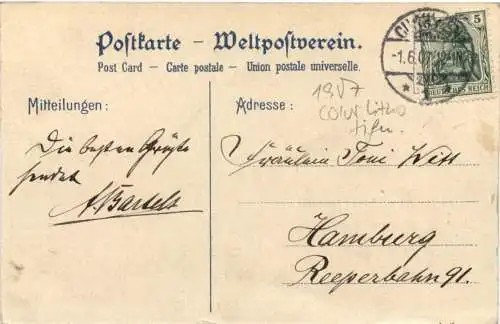 Postkarte – Weltpostverein.
Post Card – Carte postale – Union postale universelle.
Mitteilungen:
Die besten Grüße
sendet
A. Bartels
Adresse:
1907
color Litho
Fräulein Toni Witt
Hamburg
Reeperbahn 91.
5
-1.6.07
DEUTSCHES REICH